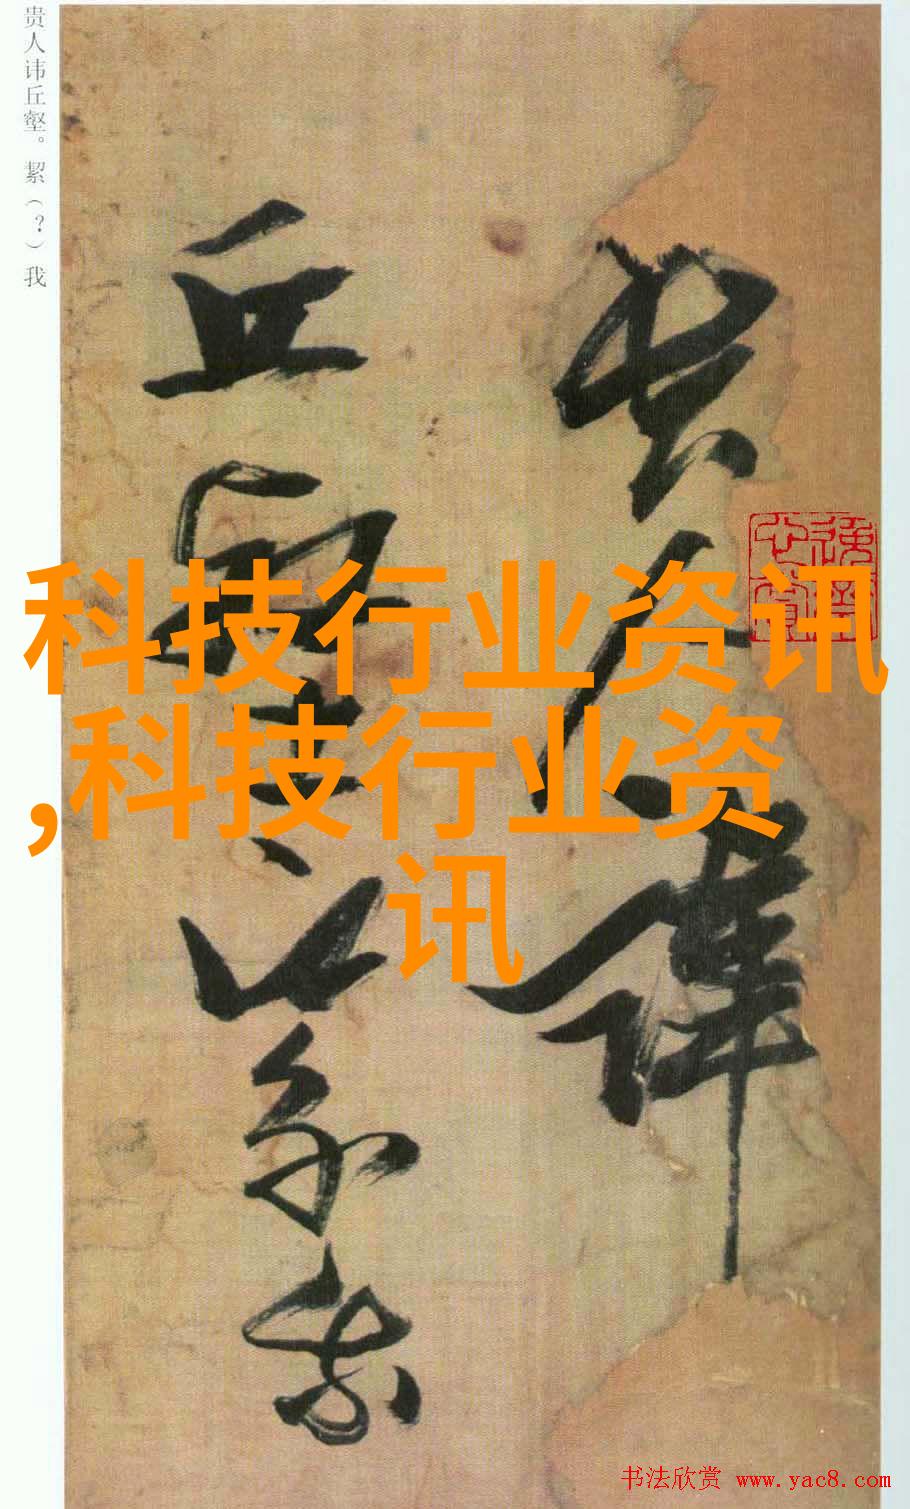 贵人讳丘壑。絜（？）我
贵人讳
丘壑之
絜我
科技行业资讯
,科技行业资
讯
书法欣赏 www.yac8.com